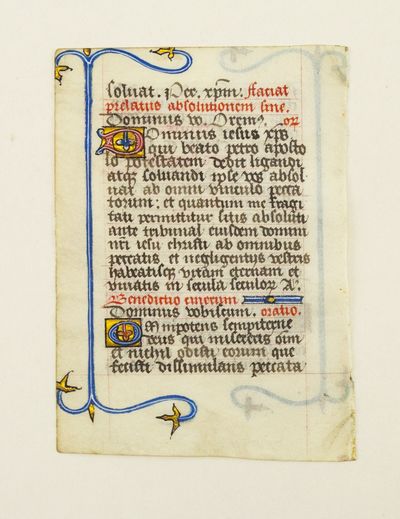 soluat. Per. xpm. Faciat
prelatus absolutionem sine.
Dominus vo. Orem9. orō
Dominus iesus xps
qui beato petro aposto
lo potestatem dedit ligandi
atq; soluandi ipse vos absol
uat ab omni vinculo pecca
torum: et quantum me fragi
tati permittitur sitis absoluti
ante tribunal eiusdem domini
nr̄i iesu christi ab omnibus
peccatis et negligentijs vestris
habeatisq; vitam eternam et
viuatis in secula seculor. A.
Benedictio cinerum
Dominus vobiscum. oratio.
Omnipotens sempiterne
deus qui misereris oīm
et nichil odisti eorum que
fecisti dissimulans peccata